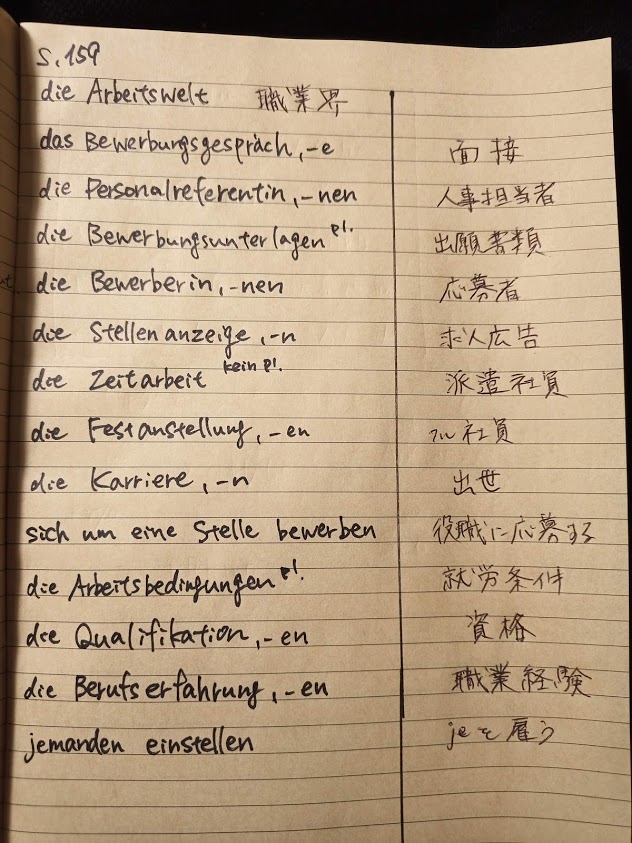 S. 159
die Arbeitswelt 職業界
das Bewerbungsgespräch, -e 面接
die Personalreferentin, -nen 人事担当者
die Bewerbungsunterlagen pl. 出願書類
die Bewerberin, -nen 応募者
die Stellenanzeige, -n 求人広告
die Zeitarbeit kein pl. 派遣社員
die Festanstellung, -en 社員
die Karriere, -n 出世
sich um eine Stelle bewerben 役職に応募する
die Arbeitsbedingungen pl. 就労条件
die Qualifikation, -en 資格
die Berufserfahrung, -en 職業経験
jemanden einstellen jeを雇う